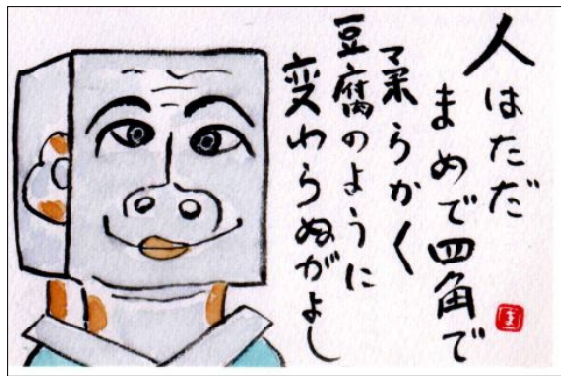 人はただ
まめで四角で
柔らかく
豆腐のように
変わらぬがよし
ま